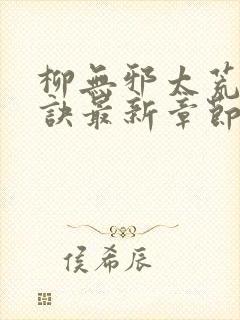 柳無邪太荒
訣最新章節
侯希辰